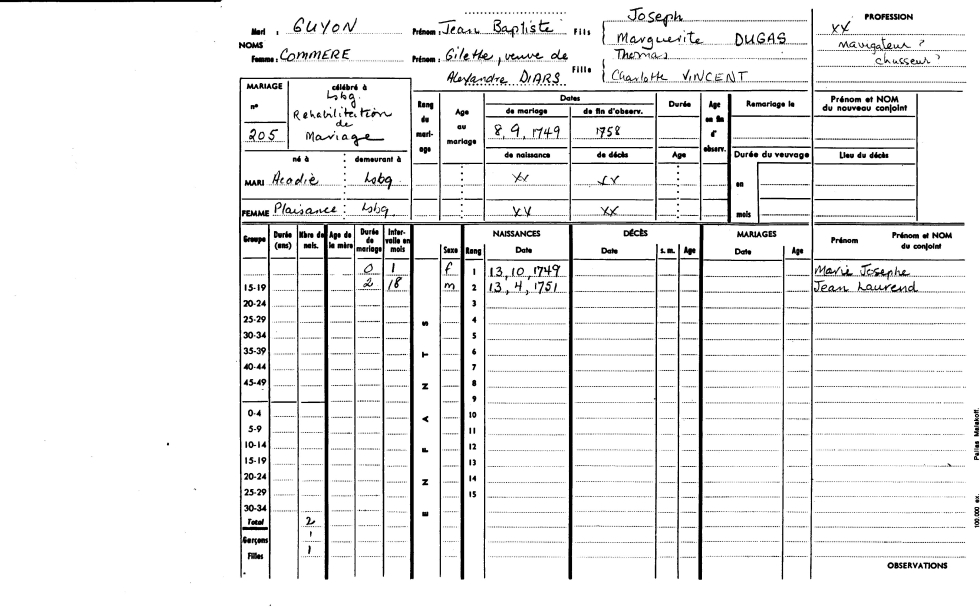 Mari : GUYON Prénom : Jean Baptiste Fils { Joseph
Marguerite DUGAS
NOMS
Femme : COMMERE Prénom : Gilette, veuve de
Alexandre DIARS Fille { Thomas
Charlotte VINCENT
PROFESSION
XX
navigateur ?
chasseur ?
MARIAGE
n°
205
célébré à
Lsbg.
Rehabilitation
de
Mariage
Rang
du
mari-
age
Age
au
mariage
Dates
de mariage de fin d'observ.
8, 9, 1749 1758
Durée
Age
en fin
d'
observ.
Remariage le
Prénom et NOM
du nouveau conjoint
né à demeurant à
de naissance de décès Age
Durée du veuvage
Lieu du décès
MARI Acadie Lsbg XX XX
en
FEMME Plaisance : Lsbg. XX XX
mois
Groupe Durée (ans) Nbre de nais. Age de la mère Durée de mariage Inter-valle en mois
ENFANTS
Sexe Rang
NAISSANCES
Date
DÉCÈS
Date s. m. Age
MARIAGES
Date Age
Prénom
Prénom et NOM
du conjoint
0 1 f 1 13, 10, 1749 Marie Josephe
15-19 2 18 m 2 13, 4, 1751 Jean Laurend
20-24 3
25-29 4
30-34 5
35-39 6
40-44 7
45-49 8
9
0-4 10
5-9 11
10-14 12
15-19 13
20-24 14
25-29 15
30-34
Total 2
Garçons 1
Filles 1
OBSERVATIONS
100 000 ex. Pallas Malakoff.